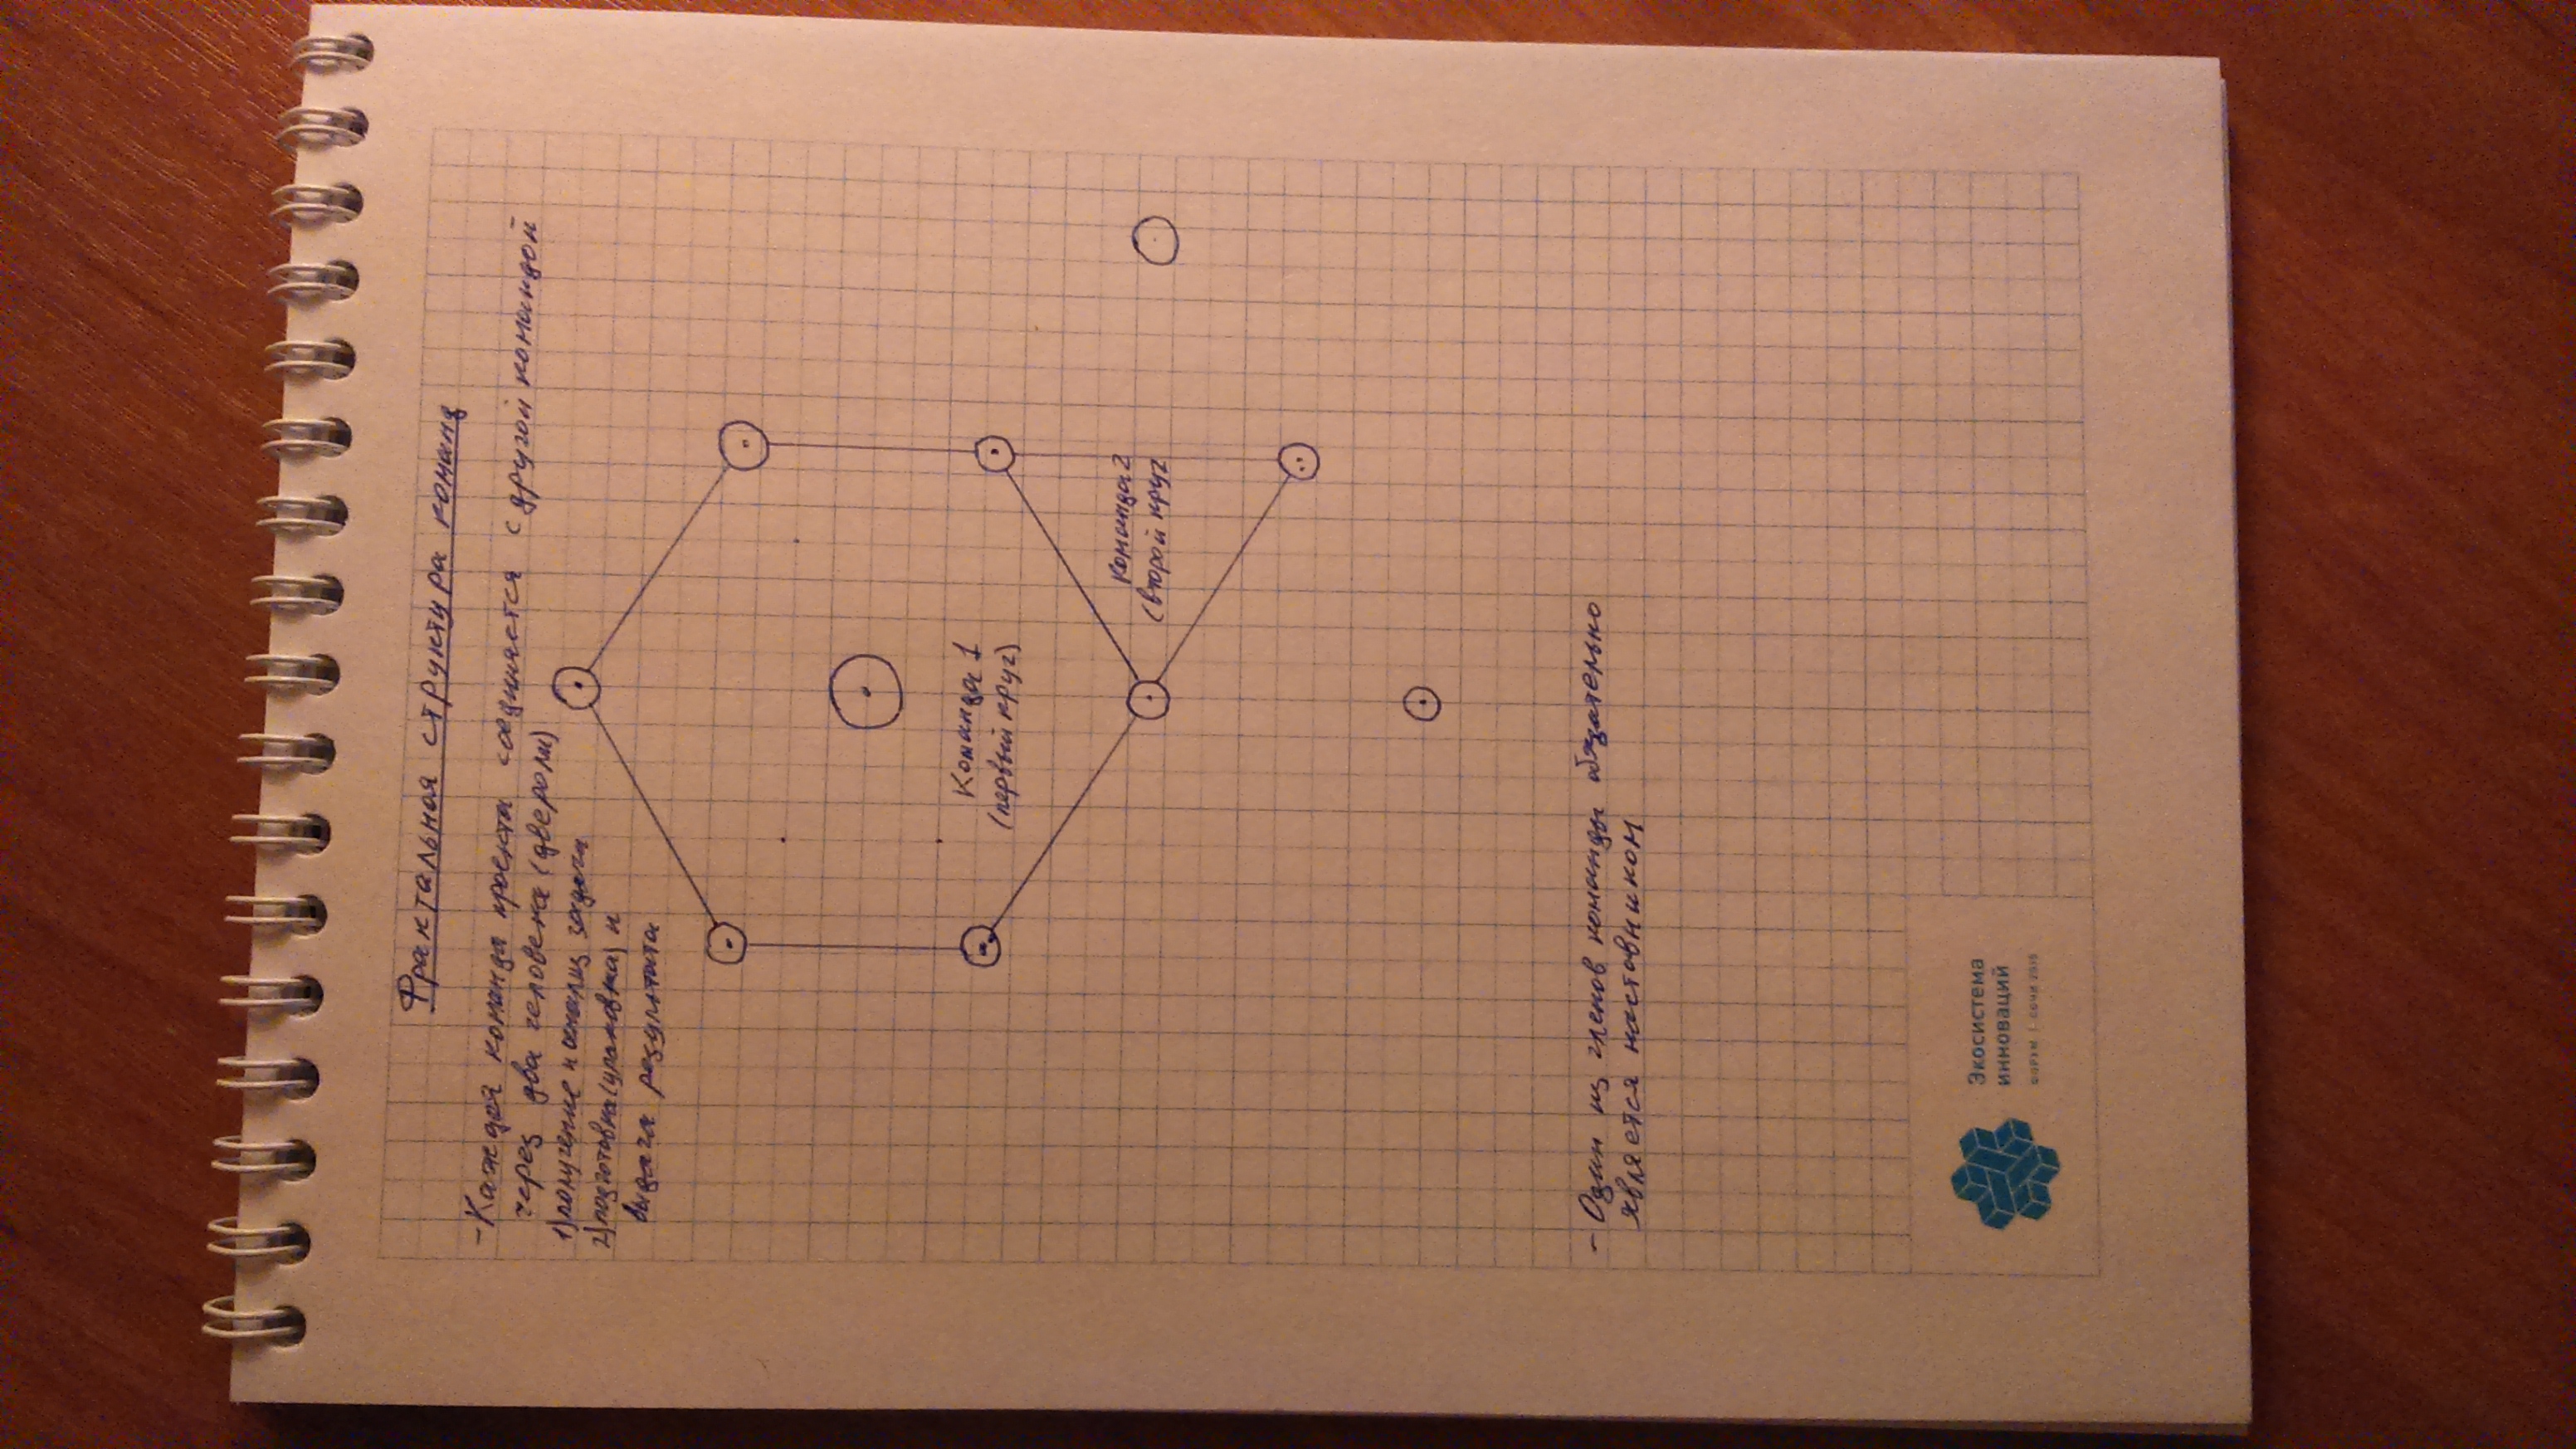 Фрактальная структура команд
- Каждая команда проекта соединяется с другой командой
через два человека (две роли)
1) получение и анализ задачи
2) подготовка (упаковка) и
выдача результата
Команда 1
(первый круг)
Команда 2
(второй круг
- Один из членов команды обязательно
является наставником
Экосистема
инноваций